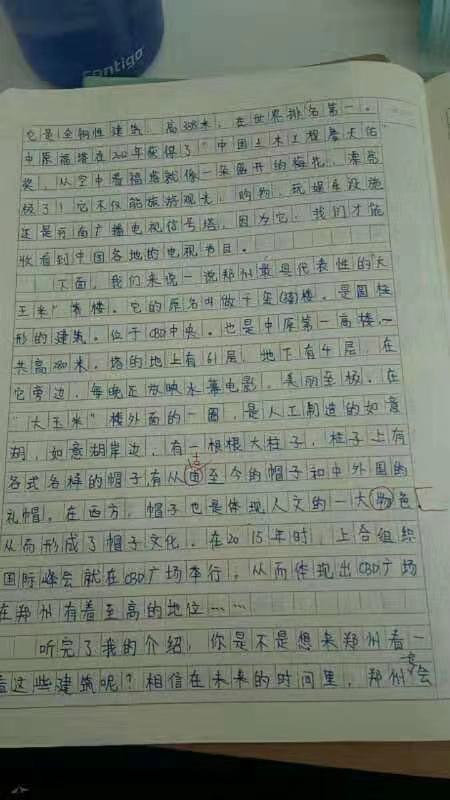 contigo
它是全钢性建筑，高388米，在世界排名第一。
中原福塔在2012年获得了“中国土木工程詹天佑
奖，从空中看福塔就像一朵盛开的梅花，漂亮
极了！它不仅能旅游观光，购物，玩娱乐设施
还是河南广播电视信号塔，因为它，我们才能
收看到中国各地的电视节目。
下面，我们来说一说郑州最具代表性的“大
玉米”楼。它的原名叫做千玺(xǐ)楼。是圆柱
形的建筑。位于CBD中央。也是中原第一高楼，一
共高280米，塔的地上有61层，地下有4层，在
它旁边，每晚还放映水幕电影，美丽至极。在
“大玉米”楼外面的一圈，是人工制造的如意
湖，如意湖岸边，有一根根大柱子，柱子上有
古
各式各样的帽子有从固至今的帽子和中外国的
礼帽。在西方，帽子也是体现人文的一大物色
从而形成了帽子文化。在2015年时，上合组织
国际峰会就在CBD广场举行，从而体现出CBD广场
在郑州有着至高的地位……
听完了我的介绍，你是不是想来郑州看一
看这些建筑呢？相信在未来的时间里，郑州会